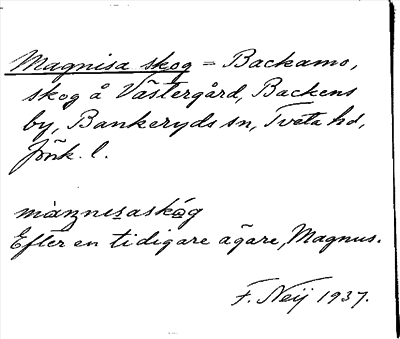 Magnisa skog = Backamo,
skog å Västergård, Backens
by, Bankeryds sn, Tveta hd,
Jönk. l.
màŋnesaskó̱g
Efter en tidigare ägare, Magnus.
F. Neij 1937.